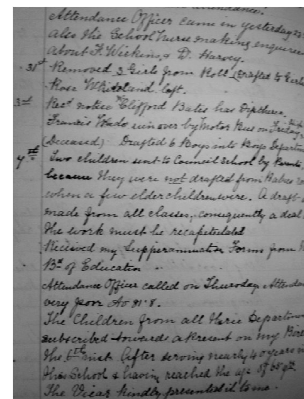 Attendance Officer came in yesterday
also the School Nurse making enquiries
about F. Wickins, & D. Harvey.
31st Removed 3 Girls from Roll (drafted to
Rose Whiteland left.
3rd Recd notice Clifford Bates has Diptheria.
Francis Wado run over by Motor Bus on Friday
(Deceased) Drafted 6 Boys into Boys Department
4th Two children sent to Council School by Parents,
because they were not drafted from Babies
when a few elder children were. A draft
made from all classes, consequently a deal
the work must be recapitulated
Received my Superannuation Forms from
Bd of Education
Attendance Officer called on Thursday. Attendance
very poor Av 91.8.
The Children from all three Departments
subscribed towards a Present on my
the 5th inst. After serving nearly 40 years in
this School & having reached the age of 65 yrs.
The Vicar kindly presented it to me.